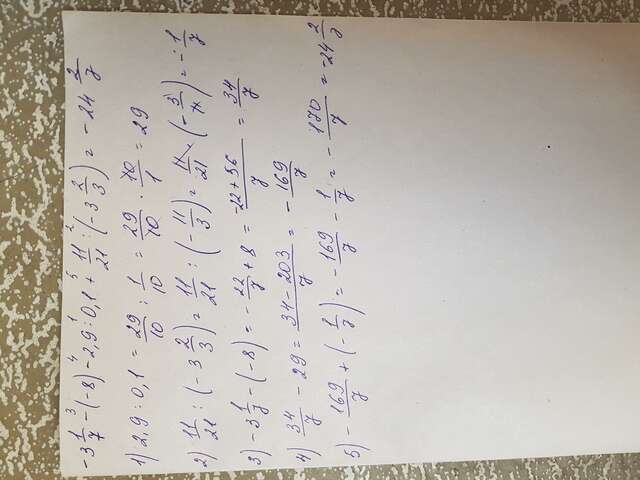 -3 1/7 - (-8) - 2,9 : 0,1 + 11/21 : (-3 2/3) = -24 2/7
1) 2,9 : 0,1 = 29/10 : 1/10 = 29/10 · 10/1 = 29
2) 11/21 : (-3 2/3) = 11/21 : (-11/3) = 11/21 × (-3/11) = -1/7
3) -3 1/7 - (-8) = -22/7 + 8 = -22+56/7 = 34/7
4) 34/7 - 29 = 34-203/7 = -169/7
5) -169/7 + (-1/7) = -169/7 - 1/7 = -170/7 = -24 2/7